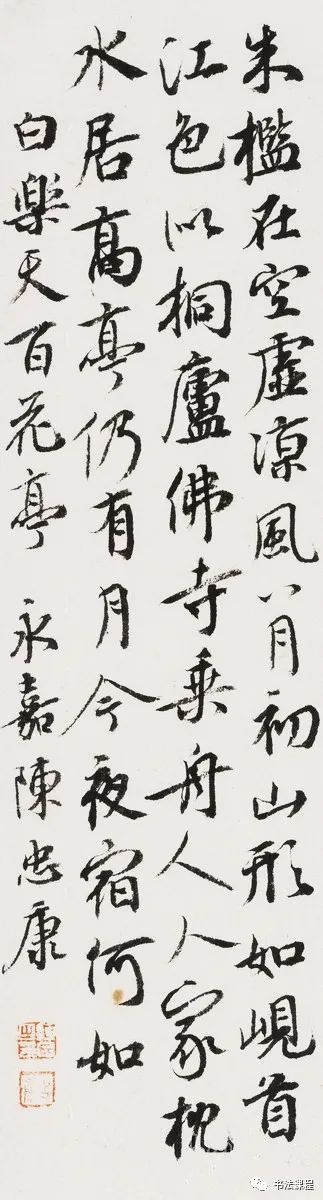 朱檻在空虛涼風八月初山形如峴首
江色似桐廬佛寺乗舟人人家枕
水居高亭仍有月今夜宿何如
白樂天百花亭 永嘉陳忠康
书法课程